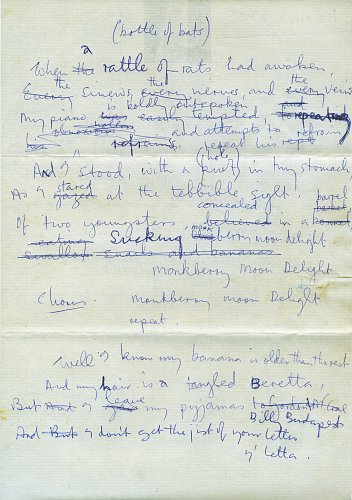 (bottle of bats)
a
When the rattle of rats had awoken,
the the the
Every sinews, every nerves, and every veins
is boldly outspoken and
My piano was easily tempted, to repeating
and attempts to refrains
refrains, repeat his
(hole)
And I stood, with a knot in my stomach,
stared
As I gazed at the tebbible sight.
concealed barrel
Of two youngsters, believed in a
eating Sucking monkberry moon delight
swallow snails and bananas
Monkberry Moon Delight
Chorus. Monkberry Moon Delight
repeat.
Well I know my banana is older than the rest
And my hair is a tangled Beretta,
leave
But And I my pyjamas to
Billy Budapest
And But I don't get the jist of your letter
y' letta.